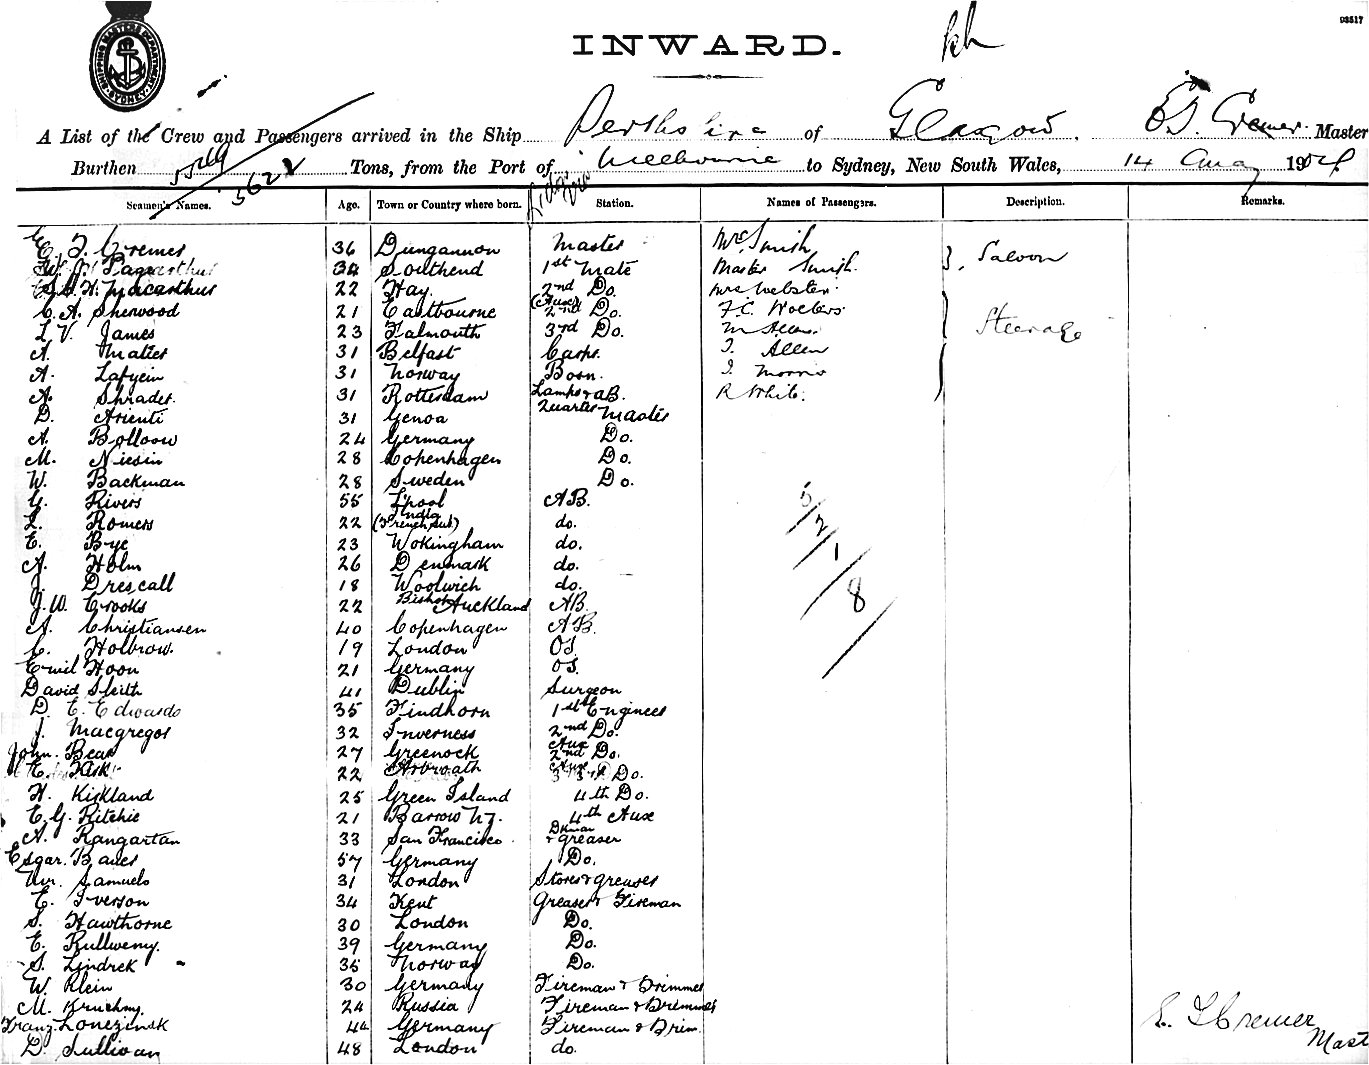 93517
SHIPPING MASTERS DEPARTMENT SYDNEY
INWARD.
A List of the Crew and Passengers arrived in the Ship Perthshire of Glasgow. E. J. Cremer Master
Burthen 3622 Tons, from the Port of Melbourne to Sydney, New South Wales, 14 1904
Seamen's Names. Age. Town or Country where born. Station. Names of Passengers. Description. Remarks.
E. J. Cremer 36 Dungannon Master Mrs. Smith Saloon
34 Southend 1st Mate Master Smith.
H. Macarthur 22 Hay. 2nd Do. Mrs Webster.
C. A. Sherwood 21 Eastbourne (Aux) 2nd Do. F. C. Wolters. Steerage
L. V. James 23 Falmouth 3rd Do. M Allen.
A. 31 Belfast Carp. J. Allen
A. 31 Norway Bosn. J. Morris
A. Shrader. 31 Rotterdam Lamps & AB. R White.
D. Arienti 31 Genoa Quarter Master
A. 24 Germany Do.
M. Niesin 28 Copenhagen Do.
W. Backman 28 Sweden Do.
G. Rivers 55 Lpool AB.
L. Romers 22 India (French sub) do.
E. Bye 23 Wokingham do.
A. Holm 26 Denmark do.
J. Drescall 18 Woolwich do.
J. W. Crooks 22 Bishop Auckland AB.
A. Christiansen 40 Copenhagen AB.
C. Holbrow. 19 London OS.
Emil Hoon 21 Germany OS.
David Sleith 41 Dublin Surgeon
D. E. Edwards 35 Findhorn 1st Engineer
J. Macgregor 32 Inverness 2nd Do.
John. Bear 27 Greenock Aux 2nd Do.
E. Kirk 22 Arbroath 3rd Do.
H. Kirkland 25 Green Island 4th Do.
E. G. Ritchie 21 Barrow 4th Aux
A. Rangartan 33 San Francisco. & greaser
Esgar. Bauer 57 Germany Do.
Wr. Samuels 31 London Stores & greaser
E. Iverson 34 Kent Greaser & Fireman
S. Hawthorne 30 London Do.
E. Rullwemy. 39 Germany Do.
S. Lindrek 35 Norway Do.
W. Klein 30 Germany Fireman & Trimmer
M. 24 Russia Fireman & Trimmer
Franz. 44 Germany Fireman & Trim.
D. Sullivan 48 London do.
5/2/1/8
E. J. Cremer
Mast